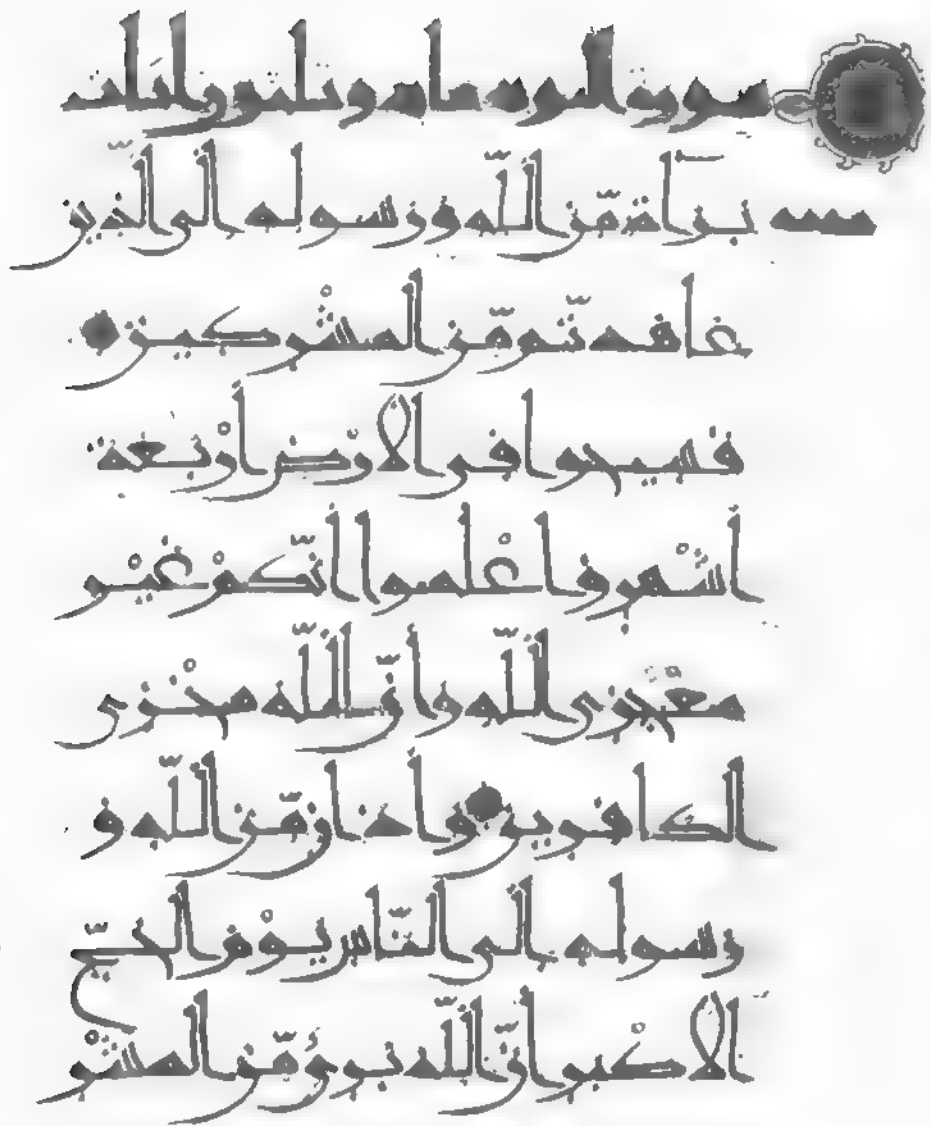 سورة التوبة مائة وثلثون
برآءة مّن اللّه ورسوله إلى الّذين
عاهدتّم مّن المشْركين
فسيحوا في الأرْض أرْبعة
أشْهر واعْلموا أنّكمْ غيْر
معْجزي اللّه وأنّ اللّه مخْزي
الكافرين وأذان مّن اللّه و
رسوله إلى النّاس يوْم الحجّ
الأكْبر أنّ اللّه بريء مّن المشْر